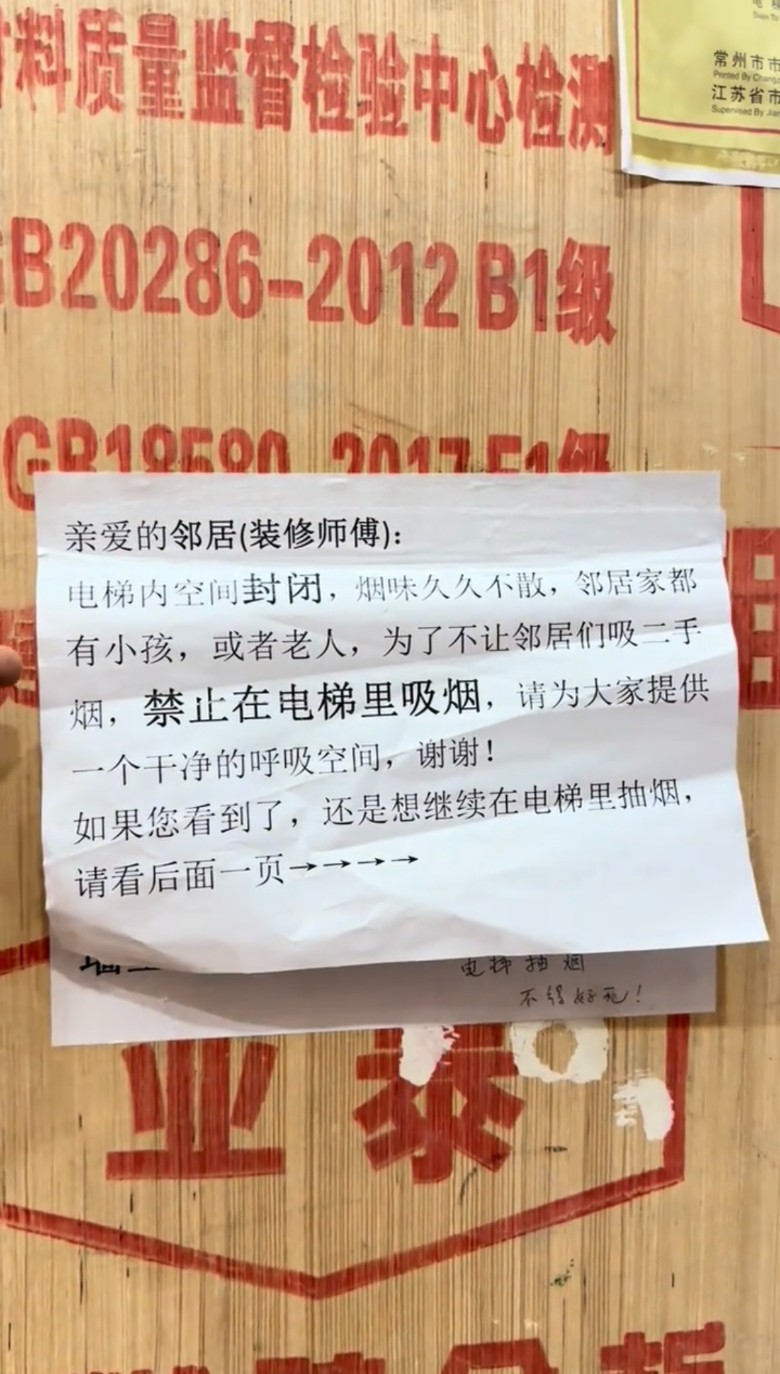 料质量监督检验中心检测
常州市市
Printed By Chang
江苏省市
Supervised By Jian
GB20286-2012 B1级
GB18580-2017 E1级
亲爱的邻居(装修师傅):
电梯内空间封闭，烟味久久不散，邻居家都
有小孩，或者老人，为了不让邻居们吸二手
烟，禁止在电梯里吸烟，请为大家提供
一个干净的呼吸空间，谢谢！
如果您看到了，还是想继续在电梯里抽烟，
请看后面一页→→→→
电梯抽烟
不得好死！
亚泰